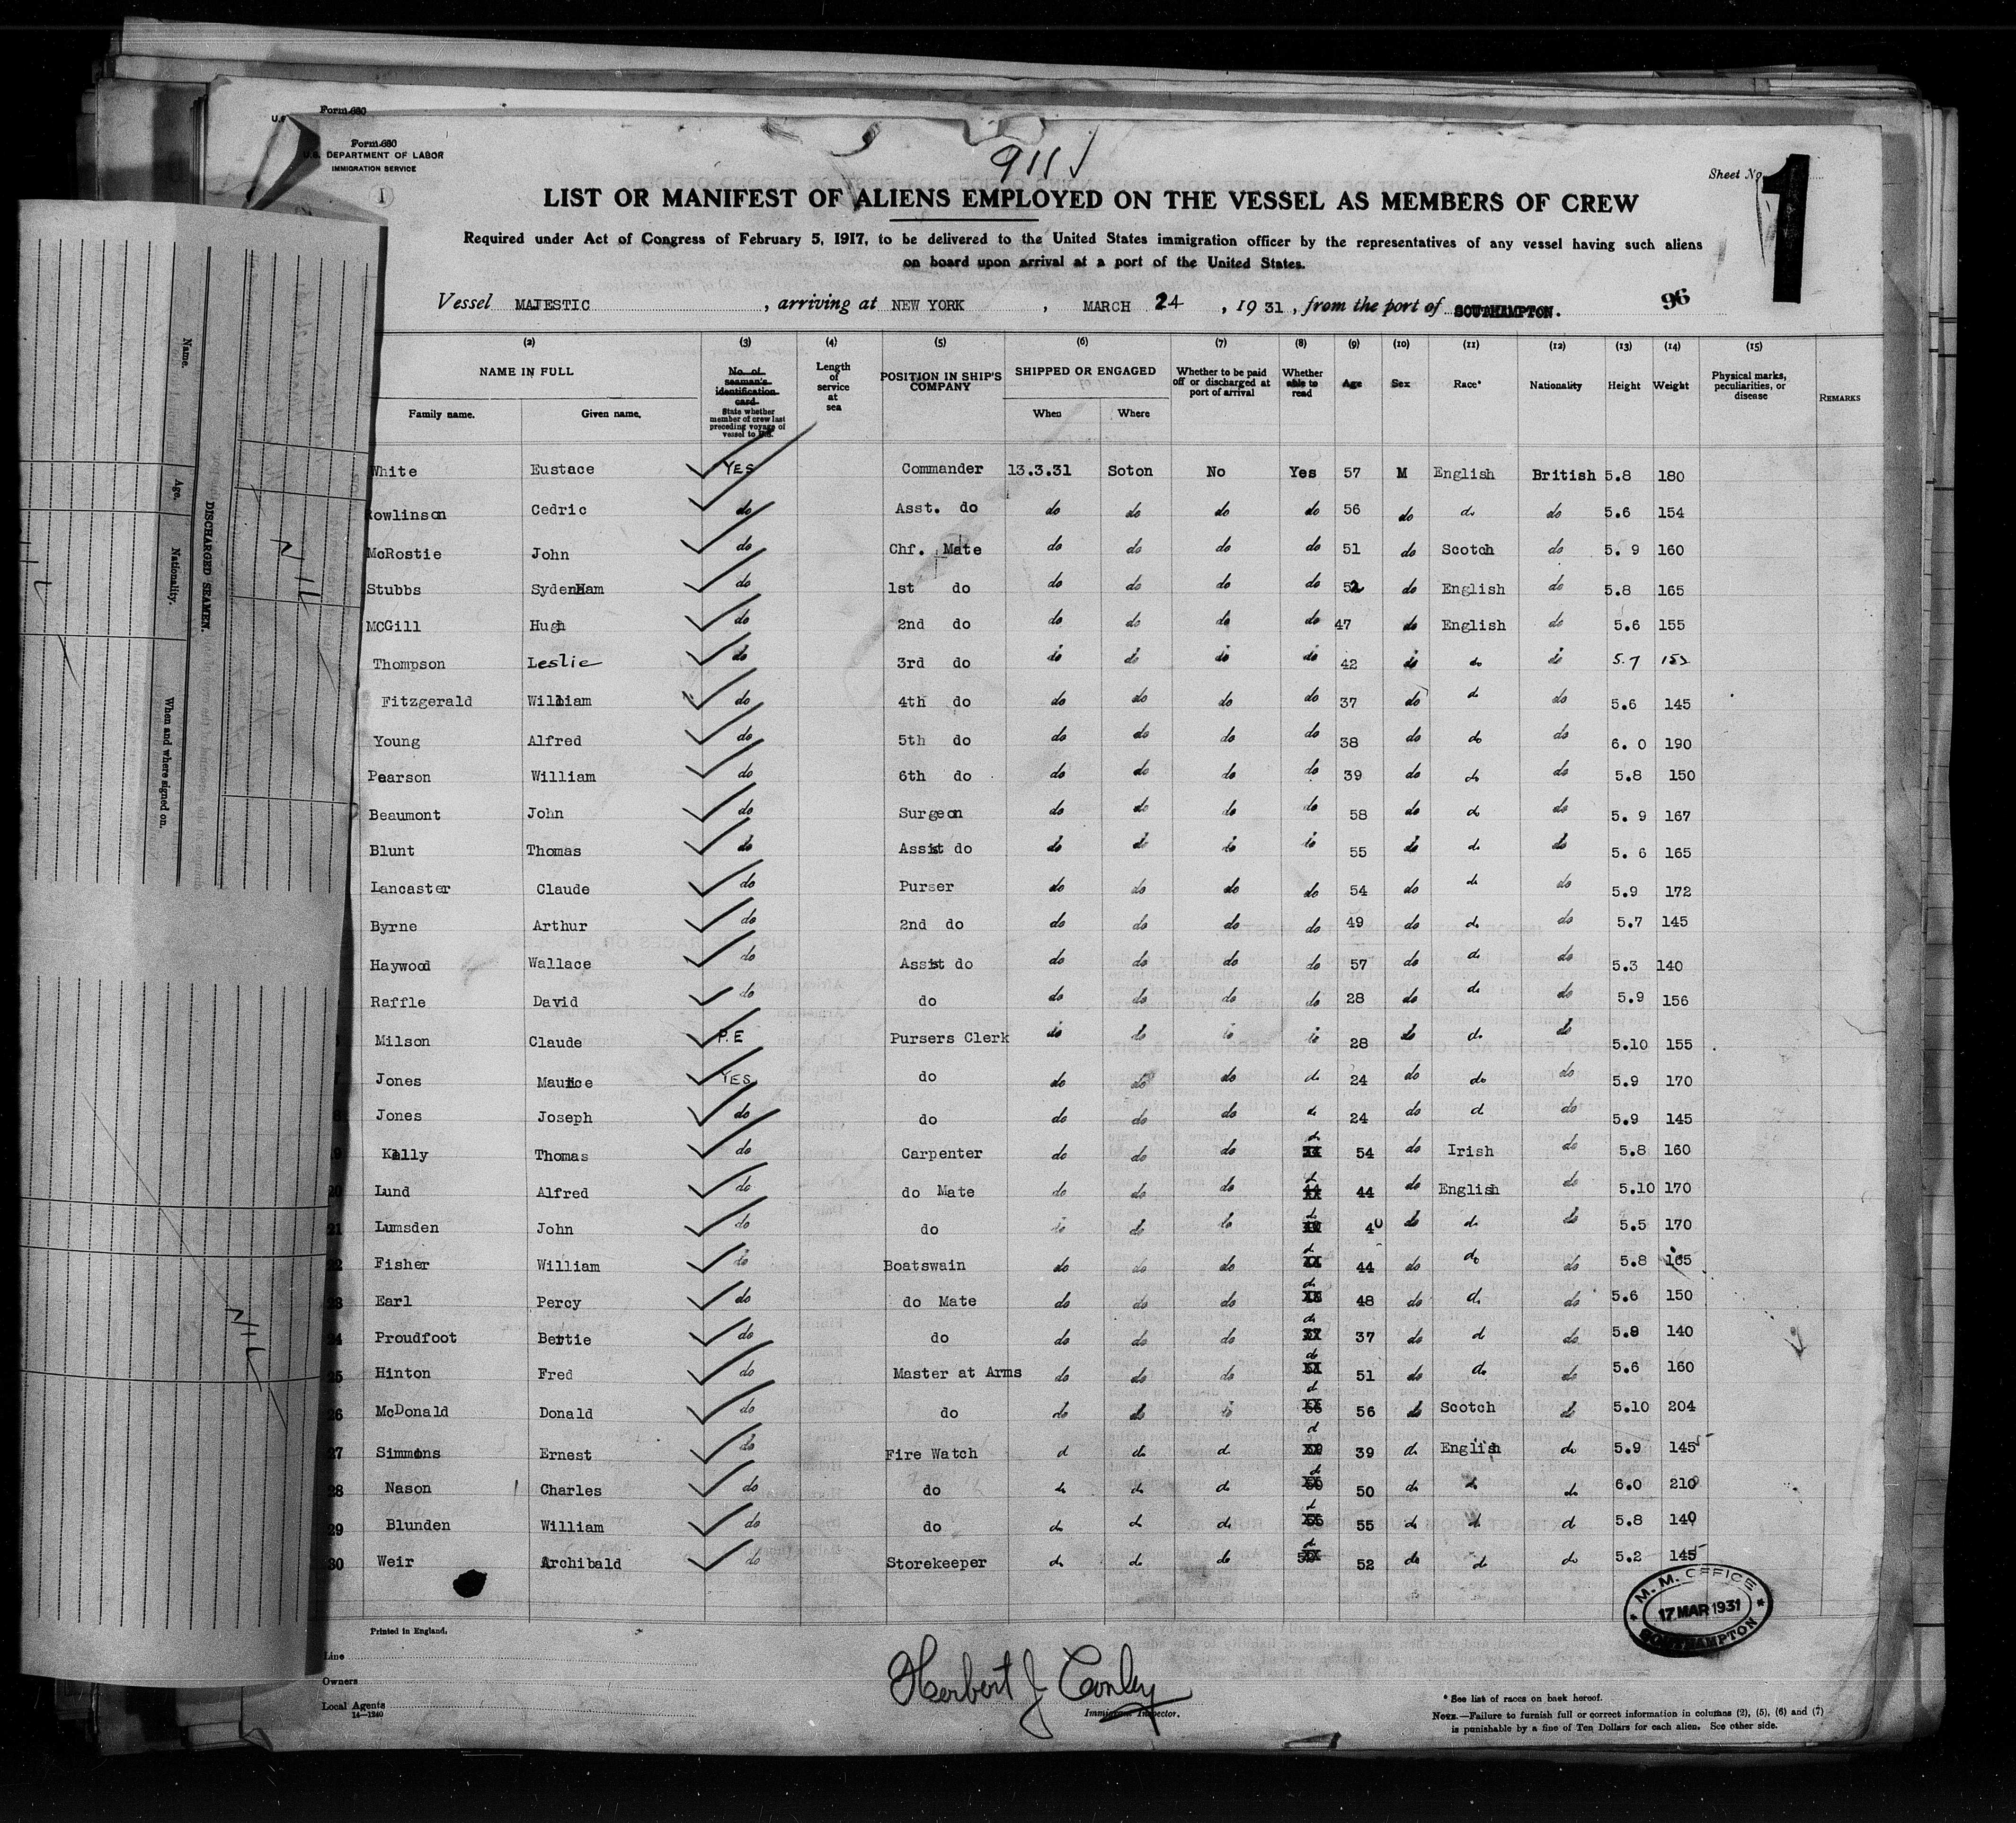 Form 680
Form 680
U.S. DEPARTMENT OF LABOR
IMMIGRATION SERVICE
1
911
Sheet No. 1
LIST OR MANIFEST OF ALIENS EMPLOYED ON THE VESSEL AS MEMBERS OF CREW
Required under Act of Congress of February 5, 1917, to be delivered to the United States immigration officer by the representatives of any vessel having such aliens
on board upon arrival at a port of the United States.
Vessel MAJESTIC, arriving at NEW YORK, MARCH 24, 1931, from the port of SOUTHAMPTON.
96
(2) (3) (4) (5) (6) (7) (8) (9) (10) (11) (12) (13) (14) (15)
NAME IN FULL No. of seaman's identification card State whether member of crew last preceding voyage of vessel to U.S. Length of service at sea POSITION IN SHIP'S COMPANY SHIPPED OR ENGAGED Whether to be paid off or discharged at port of arrival Whether able to read Age Sex Race* Nationality Height Weight Physical marks, peculiarities, or disease REMARKS
Family name. Given name. When Where
White Eustace YES Commander 13.3.31 Soton No Yes 57 M English British 5.8 180
Rowlinson Cedric do Asst. do do do do do 56 do do do 5.6 154
McRostie John do Chf. Mate do do do do 51 do Scotch do 5.9 160
Stubbs Sydenham do 1st do do do do do 52 do English do 5.8 165
MCGill Hugh do 2nd do do do do do 47 do English do 5.6 155
Thompson Leslie do 3rd do do do do do 42 do do do 5.7
Fitzgerald William do 4th do do do do do 37 do do do 5.6 145
Young Alfred do 5th do do do do do 38 do do do 6.0 190
Pearson William do 6th do do do do do 39 do do do 5.8 150
Beaumont John do Surgeon do do do do 58 do do do 5.9 167
Blunt Thomas do Assist do do do do do 55 do do do 5.6 165
Lancaster Claude do Purser do do do do 54 do do do 5.9 172
Byrne Arthur do 2nd do do do do do 49 do do do 5.7 145
Haywood Wallace do Assist do do do do do 57 do do do 5.3 140
Raffle David do do do do do do 28 do do do 5.9 156
Milson Claude P.E Pursers Clerk do do do do 28 do do do 5.10 155
Jones Maurice YES do do do do do 24 do do do 5.9 170
Jones Joseph do do do do do do 24 do do do 5.9 145
Kelly Thomas do Carpenter do do do do 54 do Irish do 5.8 160
20 Lund Alfred do do Mate do do do do 44 do English do 5.10 170
21 Lumsden John do do do do do do 40 do do do 5.5 170
22 Fisher William do Boatswain do do do do 44 do do do 5.8 165
23 Earl Percy do do Mate do do do do 48 do do do 5.6 150
24 Proudfoot Bertie do do do do do do 37 do do do 5.8 140
25 Hinton Fred do Master at Arms do do do do 51 do do do 5.6 160
26 McDonald Donald do do do do do do 56 do Scotch do 5.10 204
27 Simmons Ernest do Fire Watch do do do do 39 do English do 5.9 145
28 Nason Charles do do do do do do 50 do do do 6.0 210
29 Blunden William do do do do do do 55 do do do 5.8 140
30 Weir Archibald do Storekeeper do do do do 52 do do do 5.2 145
M. M. OFFICE
17 MAR 1931
SOUTHAMPTON
Printed in England.
Line
Owners
Local Agents
14—1240
Herbert J Conley
Immigrant Inspector.
* See list of races on back hereof.
NOTE.—Failure to furnish full or correct information in columns (2), (5), (6) and (7)
is punishable by a fine of Ten Dollars for each alien. See other side.
DISCHARGED SEAMEN.
Name. Age. Nationality. When and where signed on.
NIL
NIL